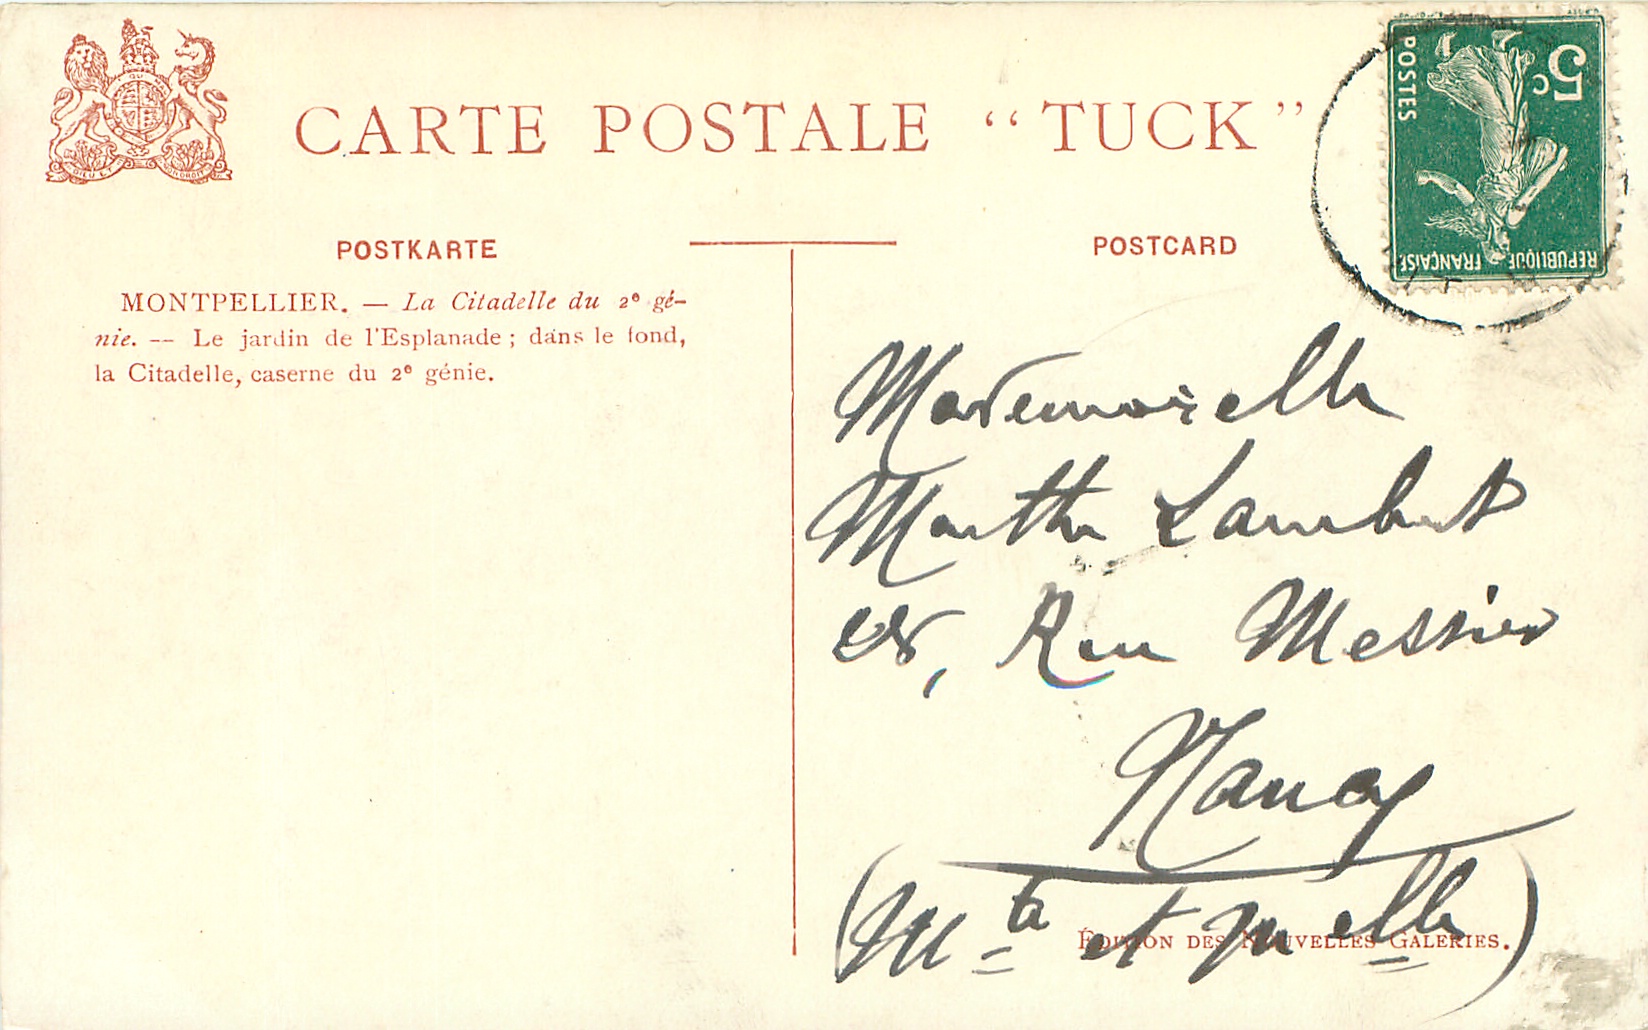 CARTE POSTALE “TUCK”
DIEU ET MON DROIT
POSTKARTE
POSTCARD
MONTPELLIER. — La Citadelle du 2e gé-
nie. — Le jardin de l'Esplanade ; dans le fond,
la Citadelle, caserne du 2e génie.
5c
POSTES
REPUBLIQUE FRANÇAISE
Mademoiselle
Marthe Lambert
Rue Messier
Nancy
(Mthe et Melle)
ÉDITION DES NOUVELLES GALERIES.